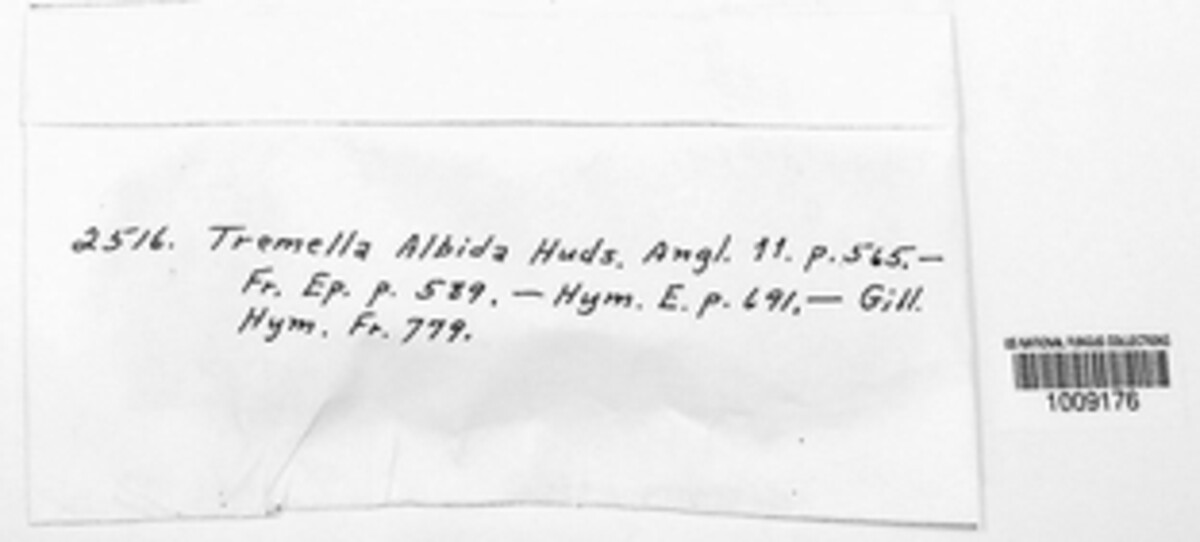 2516. Tremella Albida Huds. Angl. 11. p. 565. —
Fr. Ep. p. 589. — Hym. E. p. 691. — Gill.
Hym. Fr. 779.
US NATIONAL FUNGUS COLLECTIONS
1009176